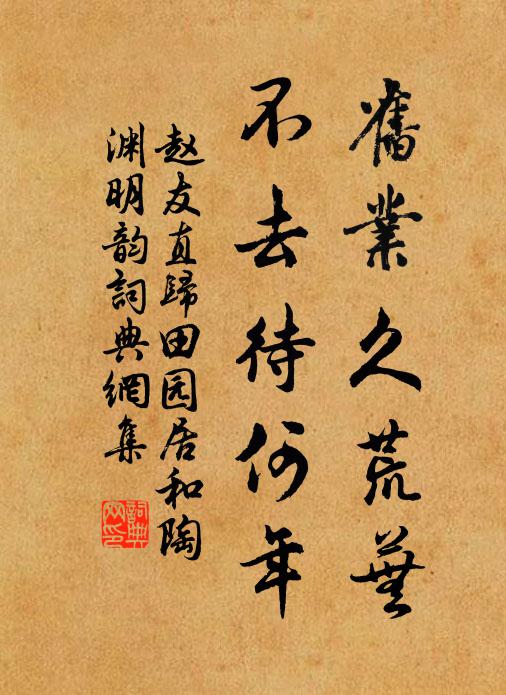 舊業久荒蕪
不去待何年
赵友直歸田园居和陶
渊明韵詞典網集
詞典网印